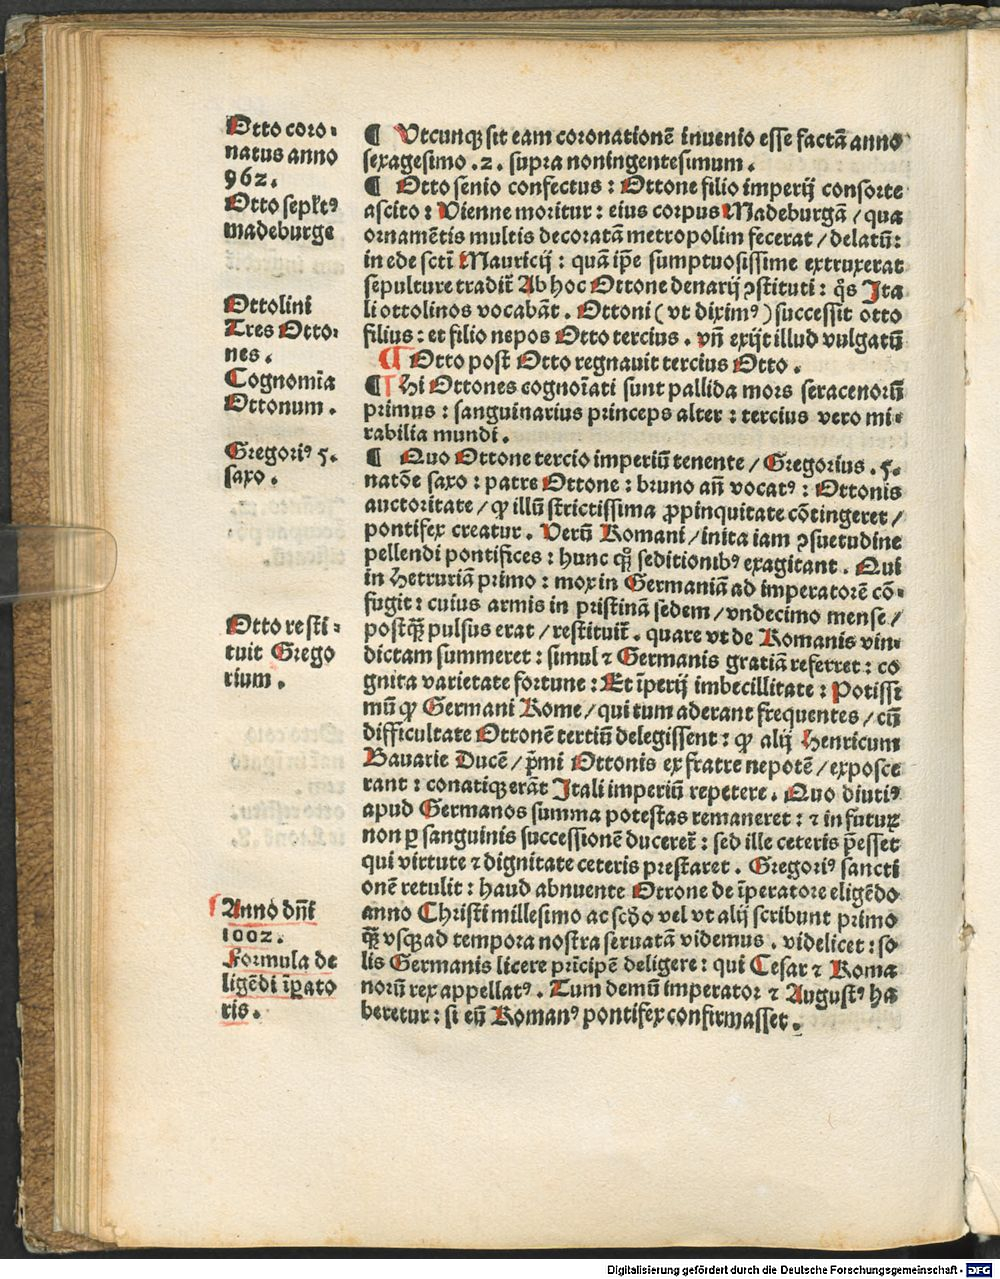 Otto coro⸗
natus anno
962.
Otto seplt⁹
madeburge
Ottolini
Tres Otto⸗
nes.
Cognomīa
Ottonum.
Gregori⁹ 5.
saxo.
Otto resti⸗
tuit Grego
rium.
Anno dn̄i
1002.
Formula de
ligēdi īpato
ris.
¶ Vtcunqꝫ sit eam coronationē inuenio esse factā anno
sexagesimo .2. supra noningentesimum.
¶ Otto senio confectus : Ottone filio imperij consorte
ascito : Vienne moritur : eius corpus Madeburgā / quā
ornamētis multis decoratā metropolim fecerat / delatū :
in ede sctī Mauricij : quā ip̄e sumptuosissime extruxerat
sepulture tradit̄ Ab hoc Ottone denarij ꝯstituti : q̊s Ita
li ottolinos vocabāt. Ottoni ( vt dixim⁹ ) successit otto
filius : et filio nepos Otto tercius. vn̄ exijt illud vulgatū
¶ Otto post Otto regnauit tercius Otto.
¶ Hi Ottones cognoīati sunt pallida mors seracenorū
primus : sanguinarius princeps alter : tercius vero mi⸗
rabilia mundi.
¶ Quo Ottone tercio imperiū tenente / Gregorius .5.
natōe saxo : patre Ottone : bruno an̄ vocat⁹ : Ottonis
auctoritate / ꝙ illū strictissima ꝓpinquitate cōtingeret /
pontifex creatur. Verū Romani / inita iam ꝯsuetudine
pellendi pontifices : hunc qͦꝫ seditionib⁹ exagitant. Qui
in Hetruriā primo : mox in Germaniā ad imperatorē cō⸗
fugit : cuius armis in pristinā sedem / vndecimo mense /
postq̄ꝫ pulsus erat / restituit̄. quare vt de Romanis vin⸗
dictam summeret : simul ⁊ Germanis gratiā referret : co
gnita varietate fortune : Et īperij imbecillitate : Potissi
mū ꝙ Germani Rome / qui tum aderant frequentes / cū
difficultate Ottonē tertiū delegissent : ꝙ alij Henricum
Bauarie Ducē / p̄mi Ottonis ex fratre nepotē / exposce
rant : conatiqꝫ erāt Itali imperiū repetere. Quo diuti⁹
apud Germanos summa potestas remaneret : ⁊ in futuꝝ
non ꝑ sanguinis successionē duceret̄ : sed ille ceteris p̄esset
qui virtute ⁊ dignitate ceteris prestaret. Gregori⁹ sancti
onē retulit : haud abnuente Ottone de īperatore eligēdo
anno Christi millesimo ac scd̄o vel vt alij scribunt primo
q̄ꝫ vsqꝫ ad tempora nostra seruatā videmus. videlicet : so
lis Germanis licere prīcipē deligere : qui Cesar ⁊ Roma
norū rex appellat⁹. Tum demū imperator ⁊ August⁹ ha
beretur : si eū Roman⁹ pontifex confirmasset.
Digitalisierung gefördert durch die Deutsche Forschungsgemeinschaft - DFG